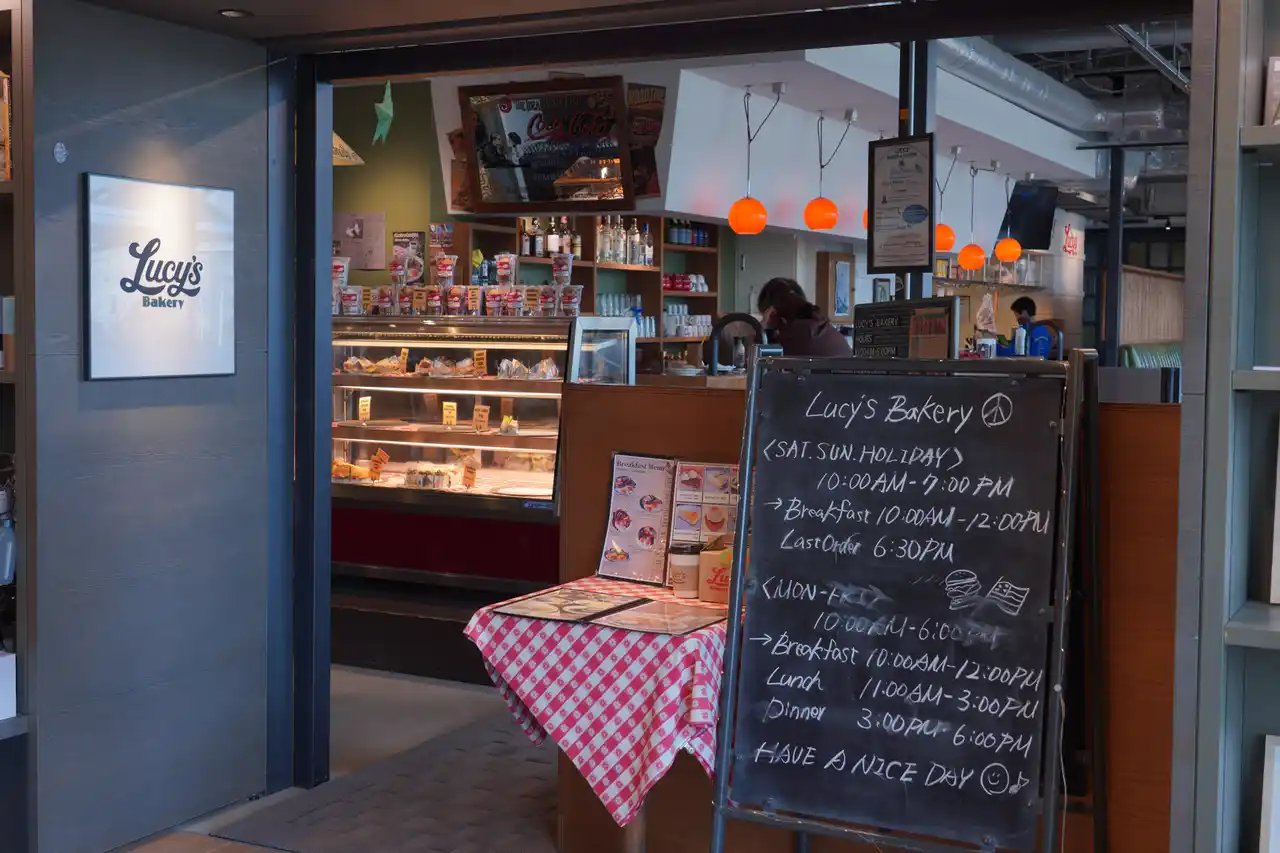 Lucy's
Bakery
Coca-Cola
Breakfast Menu
LUCY'S BAKERY
HOURS
Lucy's Bakery
<SAT.SUN.HOLIDAY>
10:00AM-7:00PM
→Breakfast 10:00AM-12:00PM
Last Order 6:30PM
<MON-FRI>
10:00AM-6:00PM
→Breakfast 10:00AM-12:00PM
Lunch 11:00AM-3:00PM
Dinner 3:00PM-6:00PM
HAVE A NICE DAY